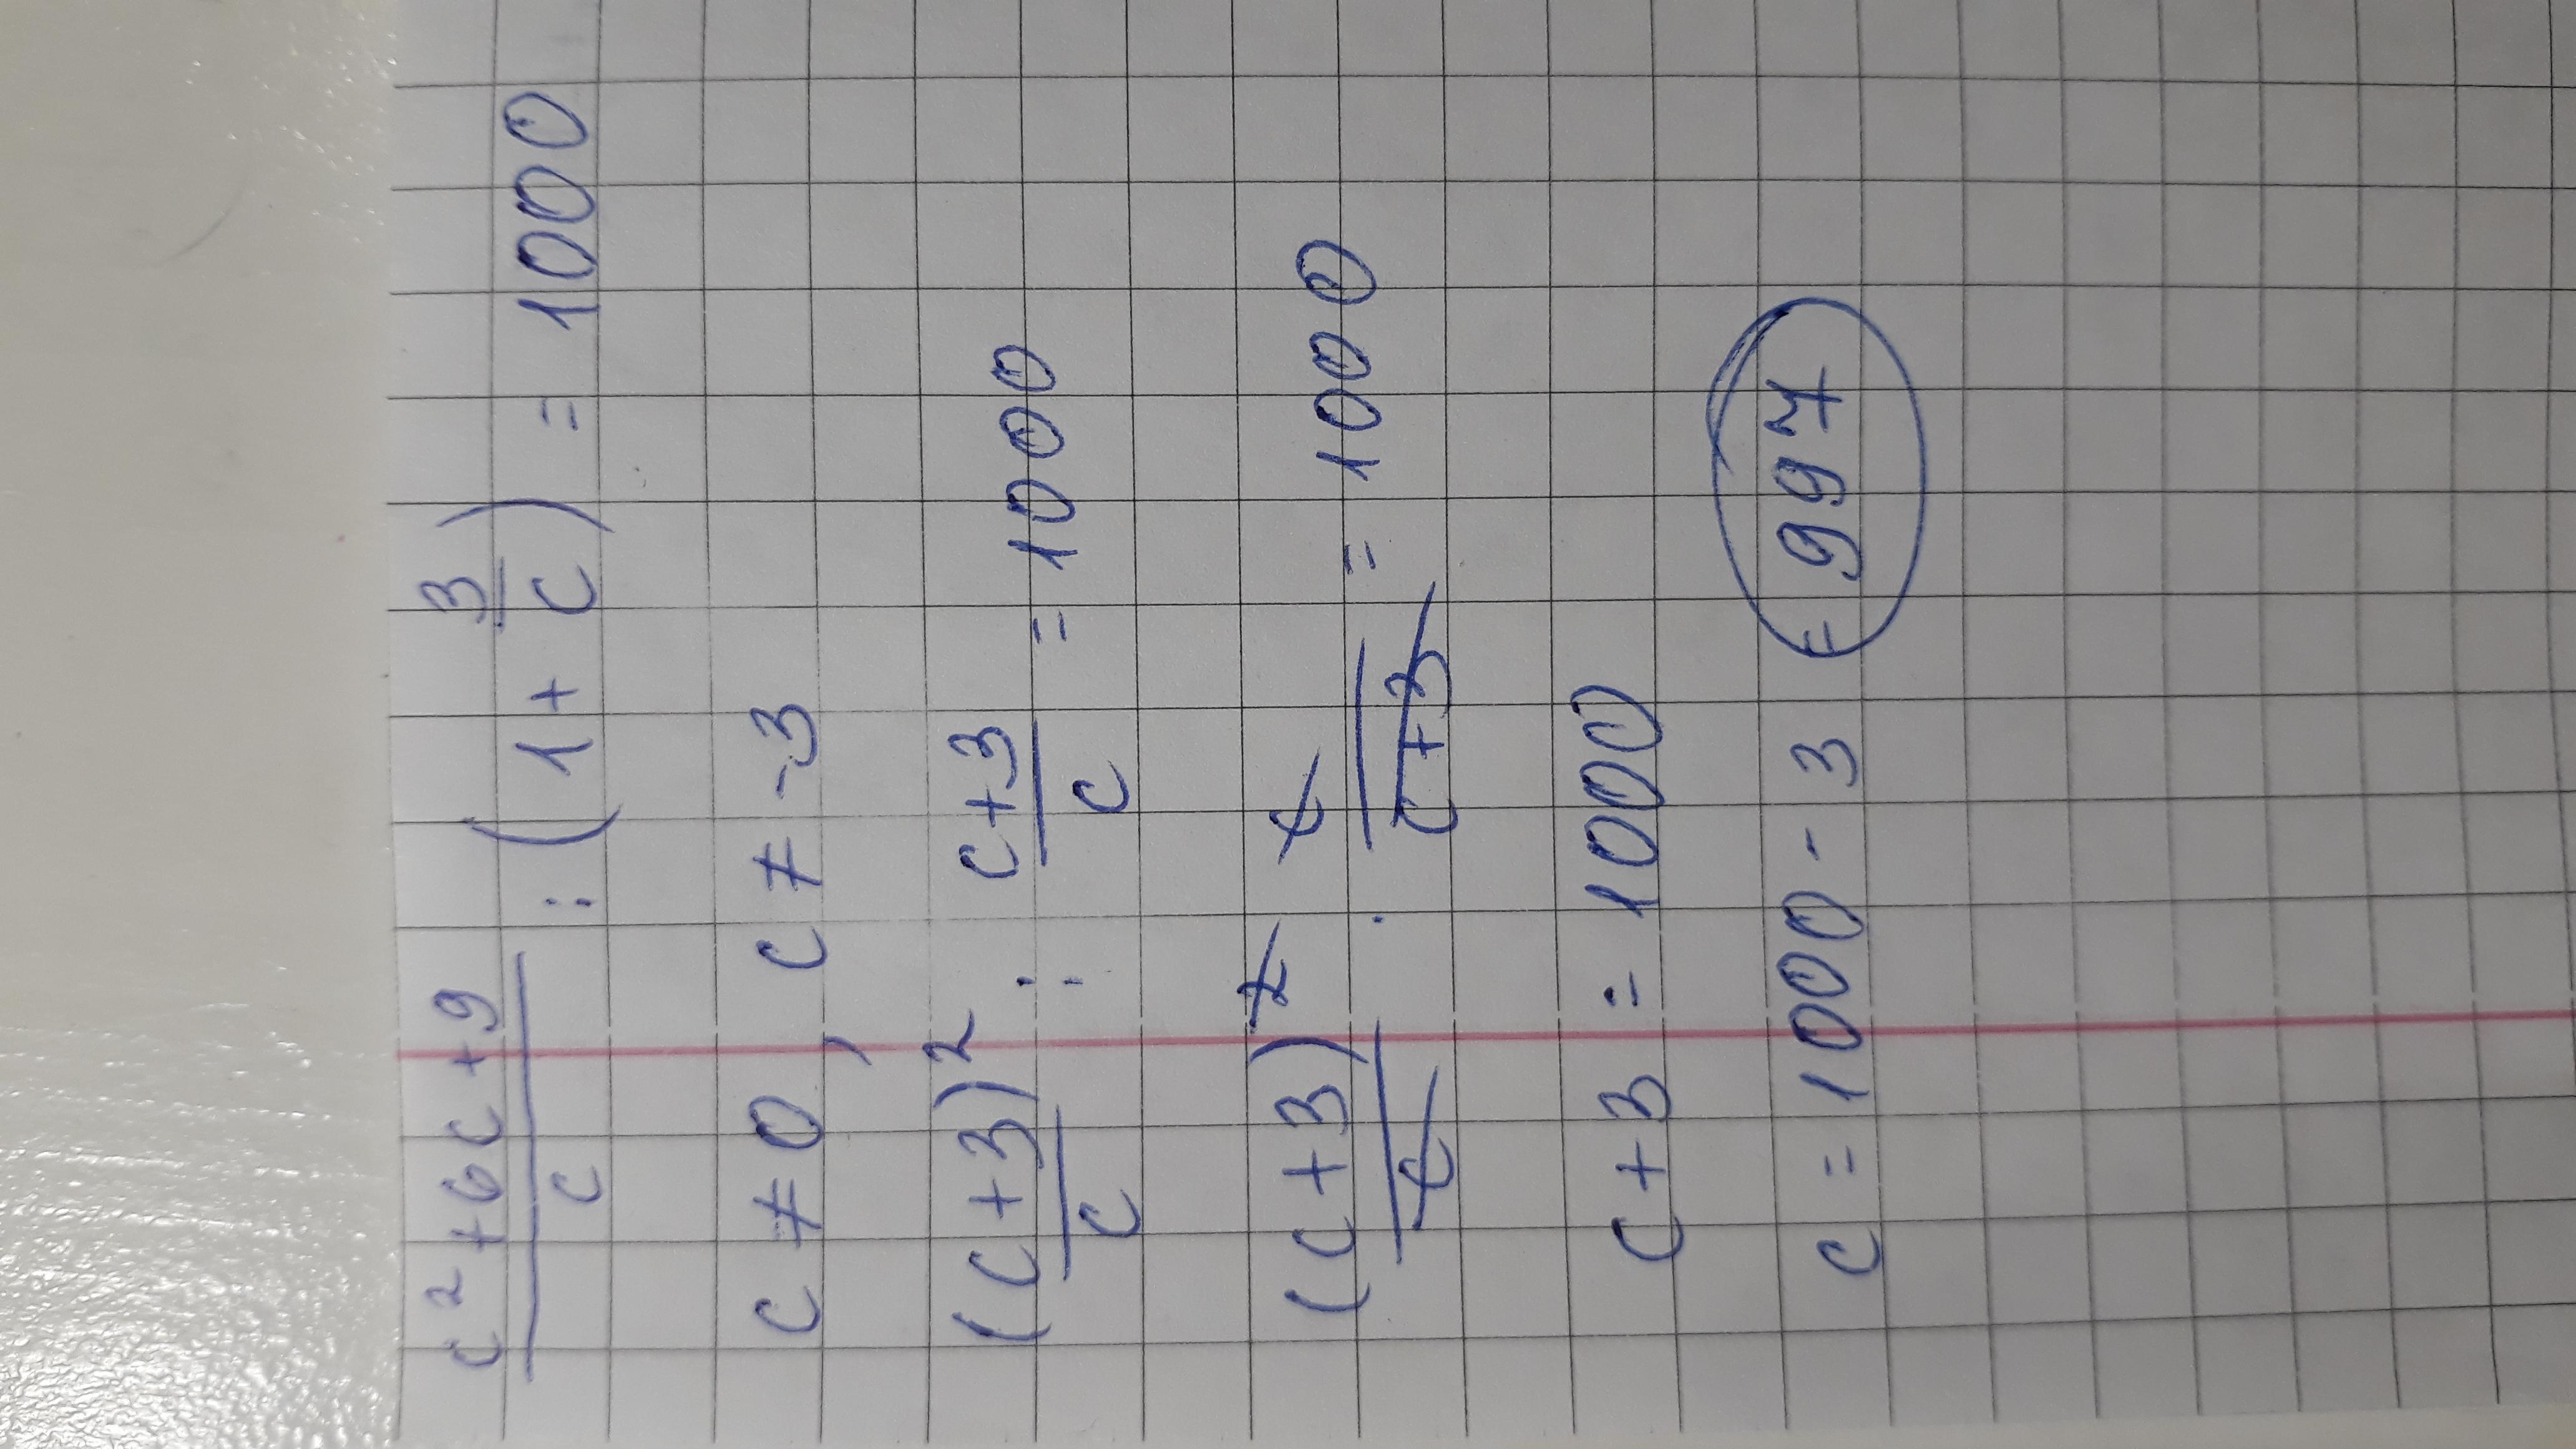 (c² + 6c + 9)/c : (1 + 3/c) = 1000
c ≠ 0, c ≠ -3
(c + 3)²/c : (c+3)/c = 1000
(c + 3)²/c · c/(c+3) = 1000
c + 3 = 1000
c = 1000 - 3 = 997